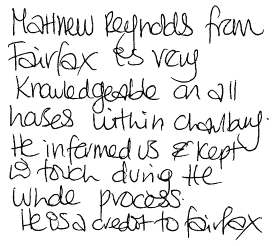 Matthew Reynolds from
Fairfax is very
Knowledgeable on all
houses within Chorlley.
He informed us & kept
in touch during the
whole process.
He is a credit to fairfax